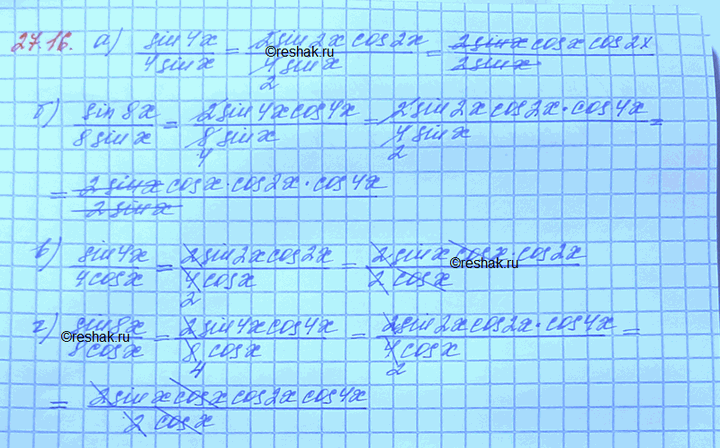 27.16. а) sin4x / 4sinx = 2sin2x cos2x / 4 sinx 2 = 2sinx cosx cos2x / 2sinx
©reshak.ru
б) sin8x / 8sinx = 2sin4x cos4x / 8 sinx 4 = 2sin2x cos2x·cos4x / 4 sinx 2 =
= 2sinx cosx·cos2x·cos4x / 2sinx
в) sin4x / 4cosx = 2sin2x cos2x / 4 cosx 2 = 2sinx cosx·cos2x / 2 cosx
©reshak.ru
г) sin8x / 8cosx = 2sin4x cos4x / 8 cosx 4 = 2sin2x cos2x·cos4x / 4 cosx 2 =
©reshak.ru
= 2sinx cosx cos2x cos4x / 2 cosx